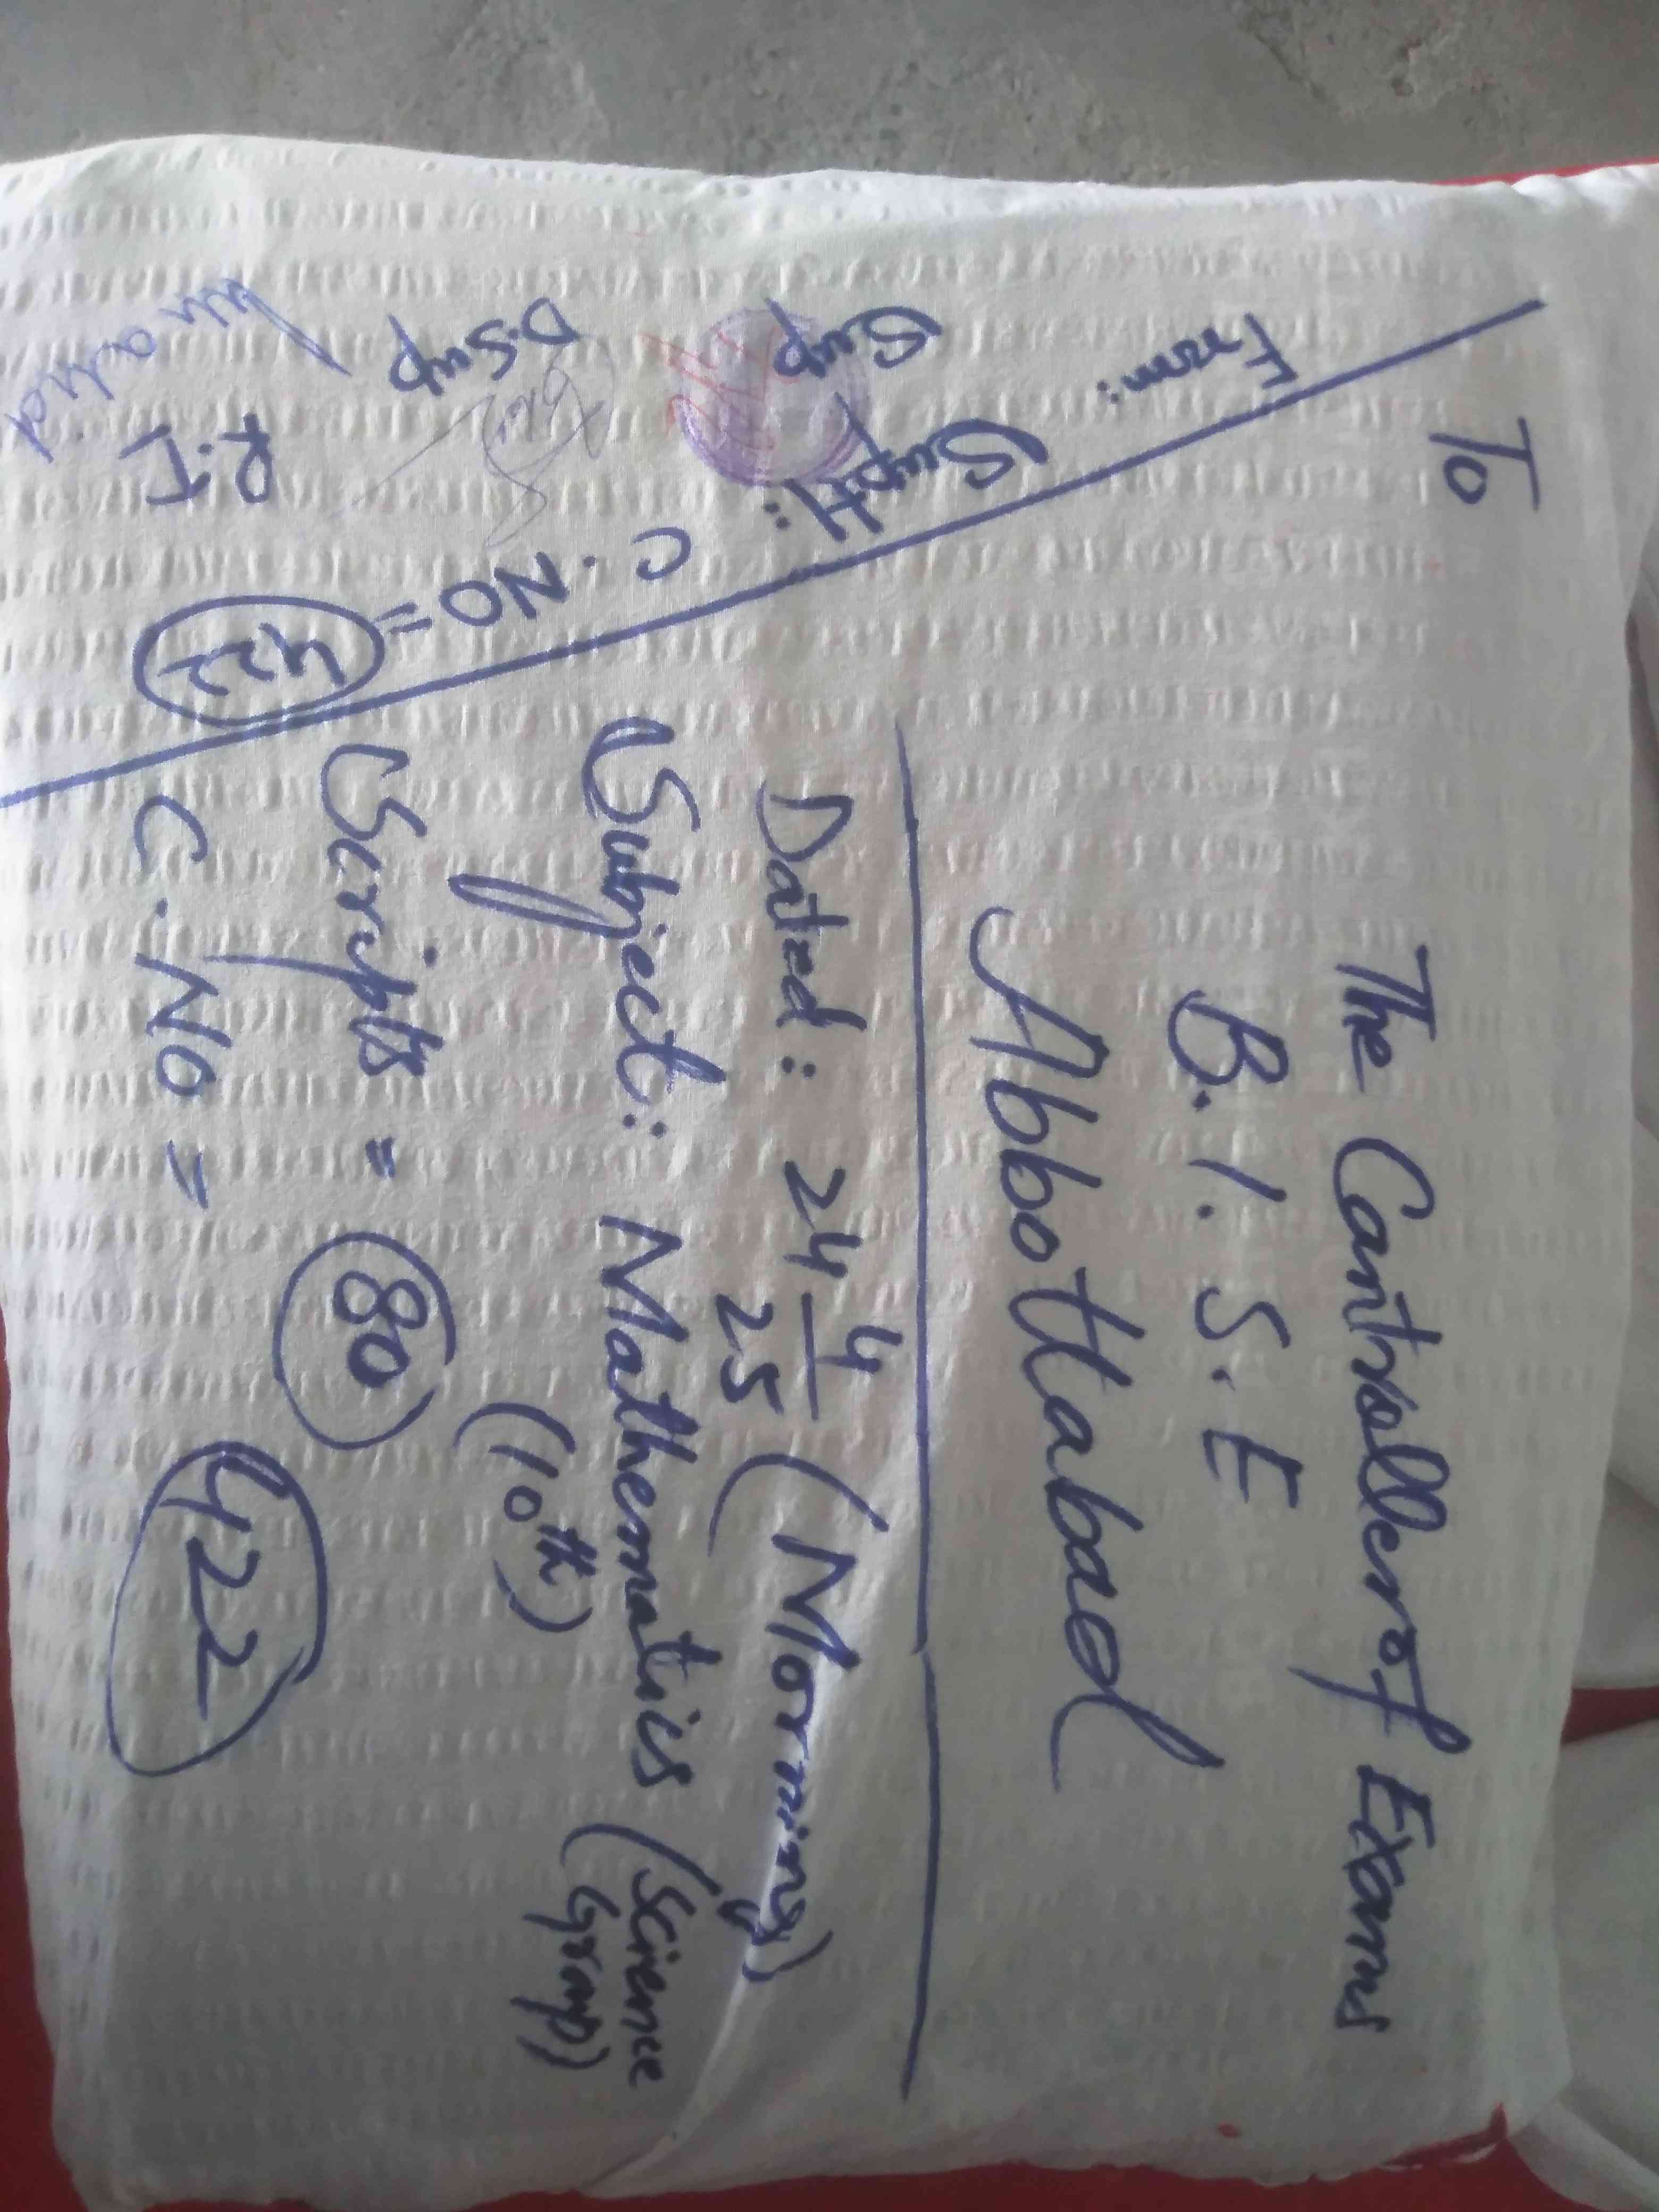 To
The Controller of Exams
B.I.S.E
Abbottabad
Dated: 24 4/25 (Morning)
Subject: Mathematics (Science Group)
(10th)
Scripts = 80
C.No = 422
From:
Supt::
Sup
D.Sup
R.I
C.NO = 422